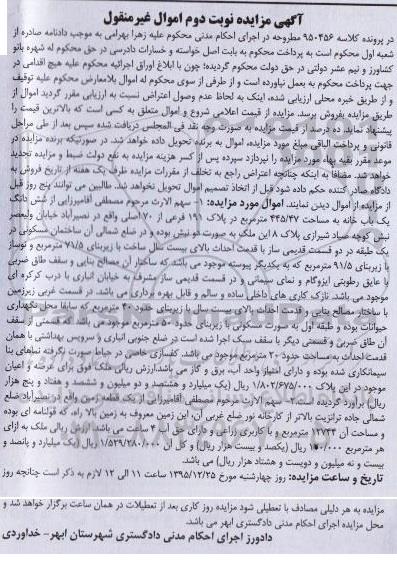 آگهی مزایده نوبت دوم اموال غیرمنقول
در پرونده کلاسه ۹۵۰۴۵۶ مطروحه در اجرای احکام مدنی محکوم علیه زهرا بهرامی به موجب دادنامه صادره از
شعبه اول محکوم است به پرداخت محکوم به بابت اصل خواسته و خسارات دادرسی در حق محکوم له شهره بانو
کشاورز و نیم عشر دولتی در حق دولت محکوم گردیده؛ چون با ابلاغ اوراق اجرائیه محکوم علیه هیچ اقدامی در
جهت پرداخت محکوم به بعمل نیاورده است و از طرفی از سوی محکوم له اموال بلامعارض محکوم علیه توقیف
و از طریق خبره محلی ارزیابی شده، اینک به لحاظ عدم وصول اعتراض نسبت به ارزیابی مقرر گردید اموال از
طریق مزایده بفروش برسد. مزایده از قیمت اعلامی شروع و اموال متعلق به کسی است که بالاترین قیمت را
پیشنهاد نماید. ده درصد از قیمت مزایده به صورت وجه نقد فی المجلس دریافت شده سپس بعد از طی مراحل
قانونی و پرداخت الباقی مبلغ مورد مزایده، اموال به برنده تحویل داده خواهد شد. در صورتیکه برنده مزایده در
موعد مقرر بقیه بهاء مورد مزایده را نپردازد سپرده پس از کسر هزینه مزایده به نفع دولت ضبط و مزایده تجدید
خواهد شد. مضافا به اینکه چنانچه اعتراض راجع به تخلف از مقررات مزایده ظرف یک هفته از تاریخ فروش به
دادگاه صادر کننده حکم داده شود قبل از اتخاذ تصمیم اموال تحویل نخواهد شد. طالبین می توانند پنج روز قبل
از مزایده از اموال دیدن نمایند. اموال مورد مزایده: ۱- سهم الارث مرحوم مصطفی آقامیرزایی از شش دانگ
یک باب خانه به مساحت ۴۴۵/۴۷ مترمربع در پلاک ۱۹۱ فرعی از ۷۰ اصلی واقع در نصیرآباد خیابان ولیعصر
نبش کوچه صیاد شیرازی پلاک ۸ این ملک به صورت دو نبش بوده و در ضلع شمالی آن ساختمان مسکونی در
یک طبقه در دو قسمت قدیمی ساز با قدمت احداث بالای بیست سال ساخت با زیربنای ۷۱/۵ مترمربع و نوساز
با زیربنای ۹۱/۵ مترمربع که به یکدیگر پیوسته موجود می باشد که ساختار آن مصالح بنایی و سقف طاق ضربی
با عایق رطوبتی ایزوگام و نمای سیمانی و در قسمت قدیمی ساز مشرف به خیابان انباری با درب کرکره ای
موجود می باشد. نازک کاری های داخلی ساده و سالم و قابل بهره برداری می باشد. در قسمت غربی زیرزمین
با ساختار مصالح بنایی و قدمت احداث بالای بیست سال با زیربنای حدود ۴۰ مترمربع که سابقا محل نگهداری
حیوانات بوده و طبقه اول به صورت مسکونی با زیربنای حدود ۵۰ مترمربع موجود می باشد که قسمتی از سقف
آن طاق ضربی و قسمتی دیگر با سقف سبک اجرا شده است در ضلع جنوبی انباری و سرویس بهداشتی با همان
قدمت احداث به مساحت حدود ۲۰ مترمربع موجود می باشد. کفسازی خاصی در حیاط صورت نگرفته نماهای بنا
سیمانکاری شده بوده و دارای امتیاز واحد آب، برق و گاز می باشد.ارزش ریالی ملک فوق برای عرصه و اعیان
موجود در این پلاک ۱/۸۰۲/۶۷۵/۰۰۰ ریال (یک میلیارد و هشتصد و دو میلیون و ششصد و هفتاد و پنج هزار
ریال) برآورد گردیده است. ۲- سهم الارث مرحوم مصطفی آقامیرزایی از یک قطعه زمین واقع در نصیرآباد ضلع
شمالی جاده ترانزیت بالاتر از کارخانه نور ضلع غربی آن، این زمین معروف به زمین بالا راه، که قولنامه ای بوده
و مساحت آن ۱۲۷۴۴ مترمربع و با کاربری زراعی و دارای حق آبه ۴ ساعت می باشد.ارزش ریالی ملک به ازای
هر مترمربع ۱۲۰/۰۰۰ ریال (یکصد و بیست هزار ریال) و کل آن ۱/۵۲۹/۲۸۰/۰۰۰ ریال (یک میلیارد و پانصد و
بیست و نه میلیون و دویست و هشتاد هزار ریال) می باشد.
تاریخ و ساعت مزایده: روز چهارشنبه مورخ ۱۳۹۵/۱۲/۲۵ ساعت ۱۱ الی ۱۲ لازم به ذکر است چنانچه روز
مزایده به هر دلیلی مصادف با تعطیلی شود مزایده روز کاری بعد از تعطیلات در همان ساعت برگزار خواهد شد و
محل مزایده اجرای احکام مدنی دادگستری ابهر می باشد.
دادورز اجرای احکام مدنی دادگستری شهرستان ابهر- خداوردی